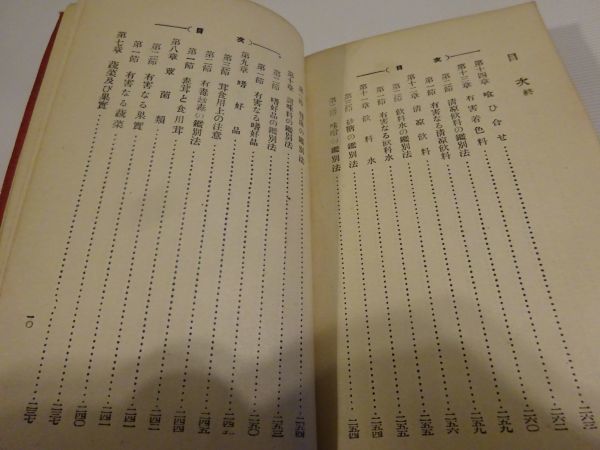 目次
第七章 蔬菜及び果實 二三七
第一節 有害なる蔬菜 二三七
第二節 有害なる果實 二四〇
第八章 蕈菌類 二四一
第一節 毒茸と食用茸 二四一
第二節 の鑑別法 二四四
第三節 茸食用上の注意
第九章 嗜好品
第一節 有害なる嗜好品
第二節 嗜好品の鑑別法 二五〇
第十章 調味料の鑑別法
第一節 の鑑別法 二五四
一〇
目次
第二節 味噌の鑑別法 二五四
第三節 砂糖の鑑別法 二五四
第十一章 飲料水 二五五
第一節 有害なる飲料水 二五五
第二節 飲料水の鑑別法 二五六
第十二章 清凉飲料 二五九
第一節 有害なる清凉飲料
第二節 清凉飲料の鑑別法 二五九
第十三章 有害着色料 二六〇
第十四章 喰ひ合せ 二六三
目次 終